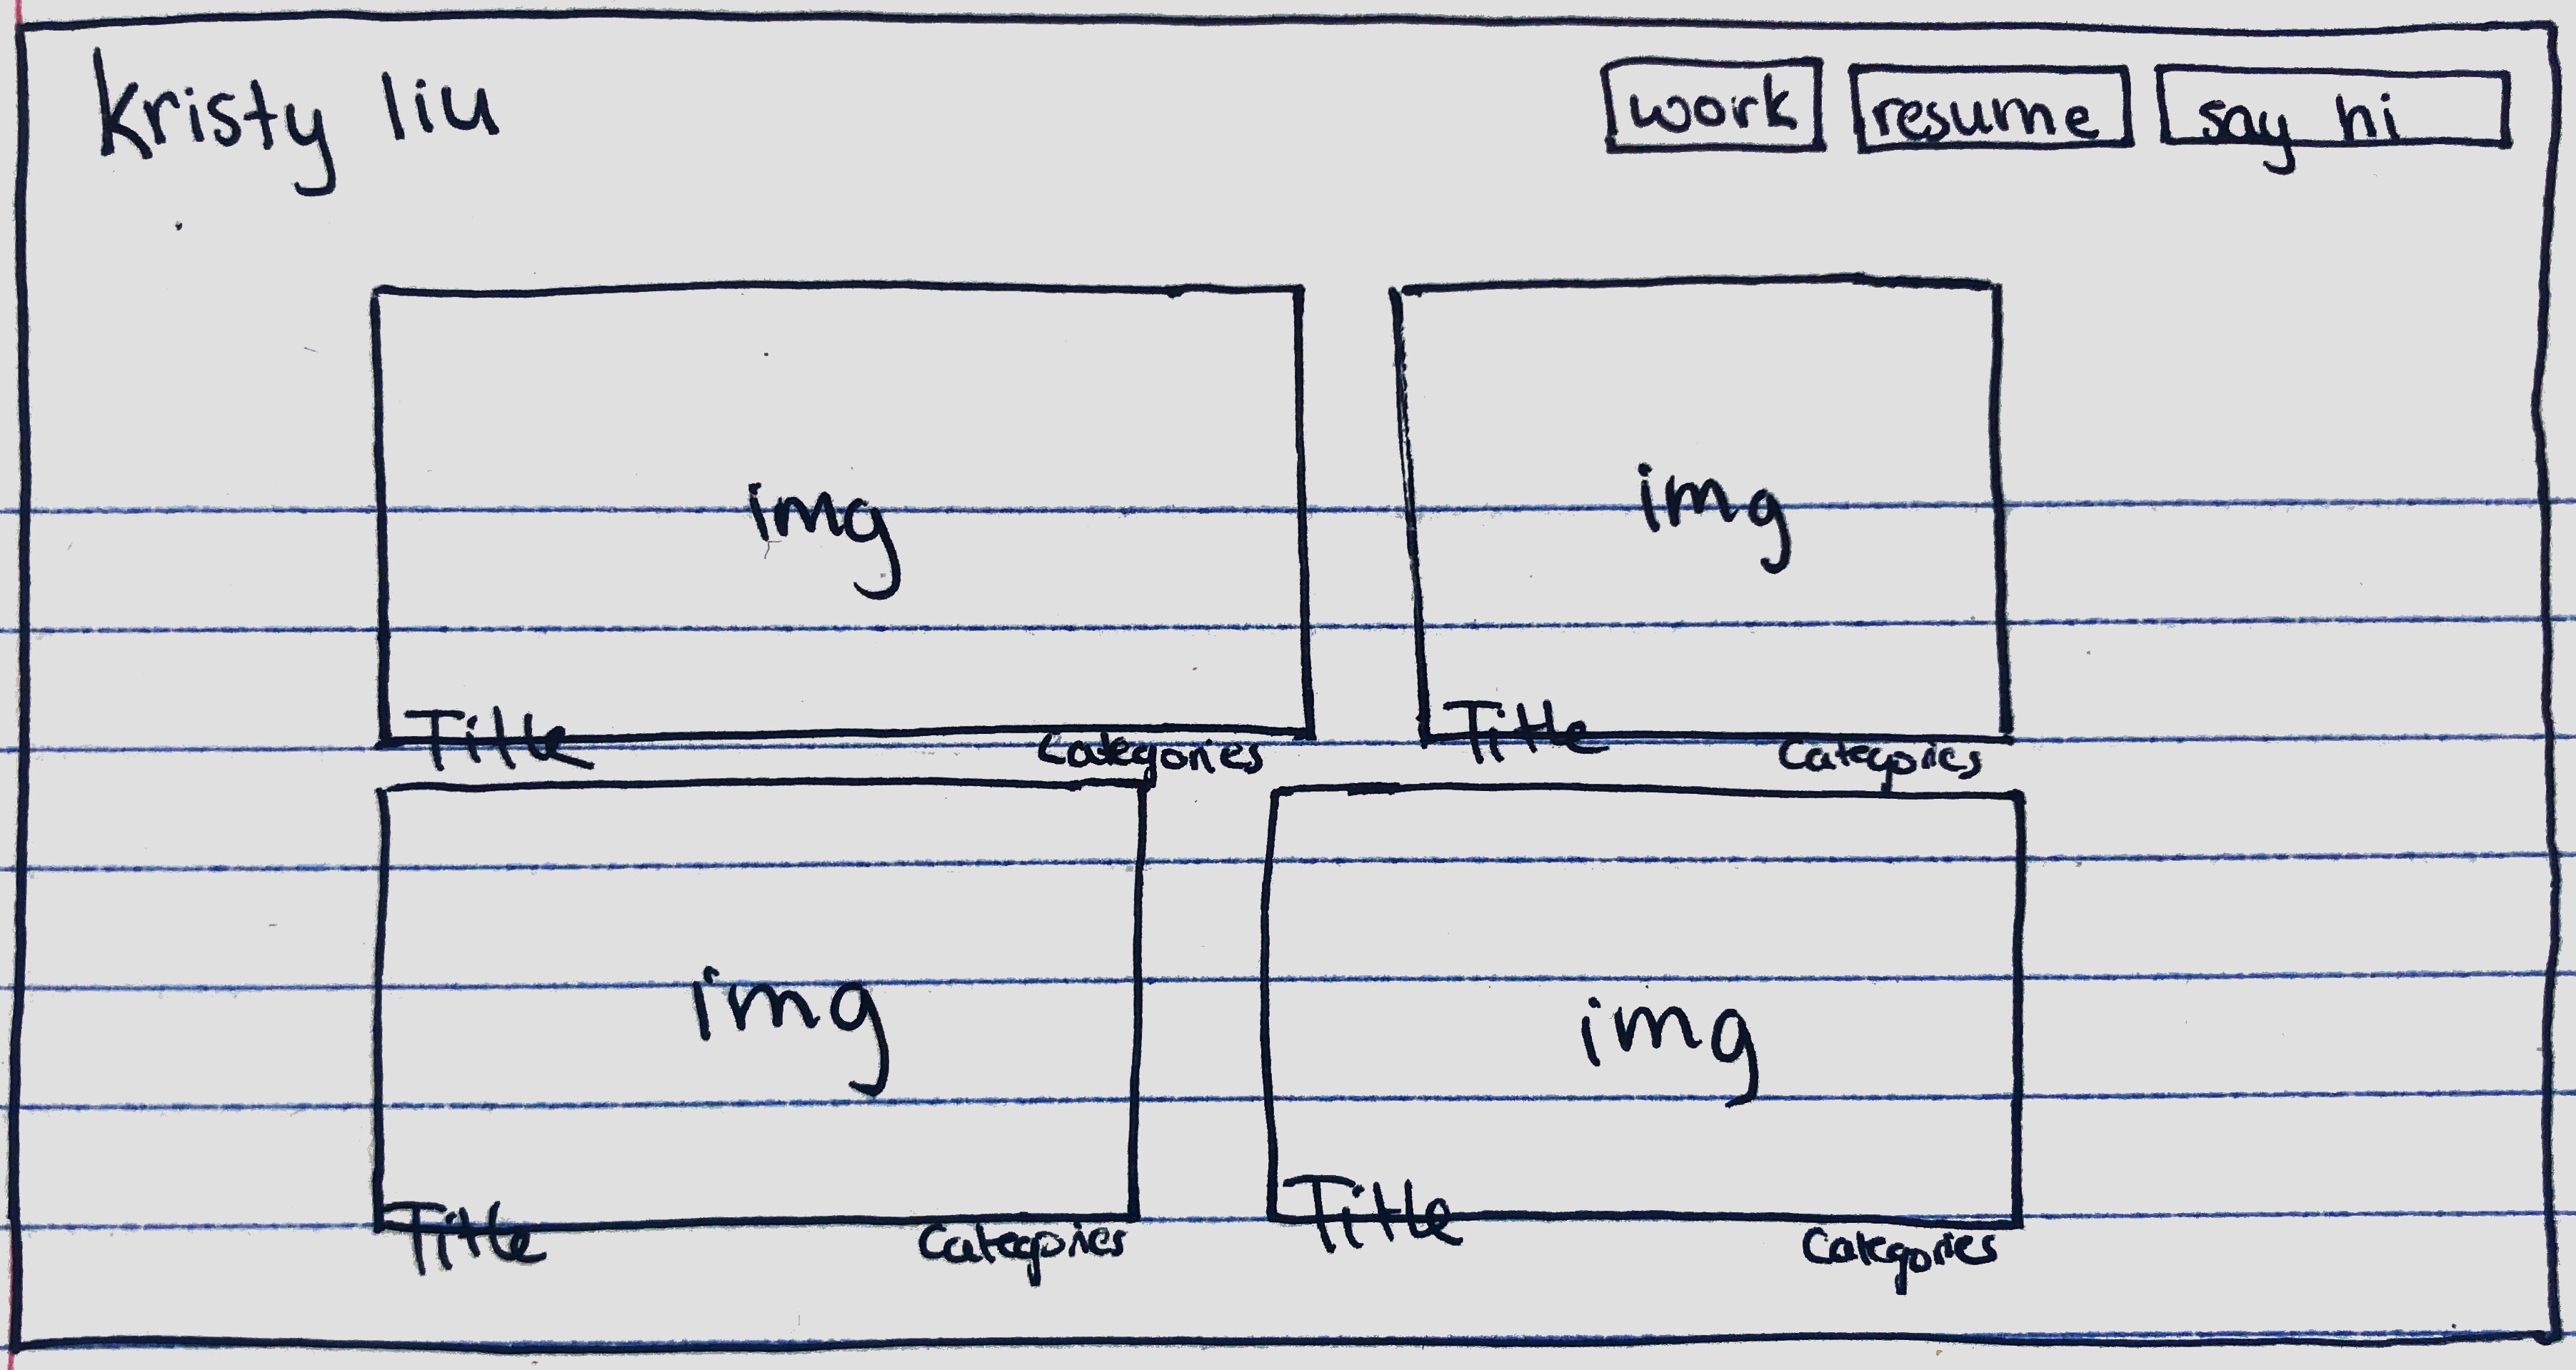 kristy liu
work resume say hi
img img
Title Categories Title Categories
img img
Title Categories Title Categories